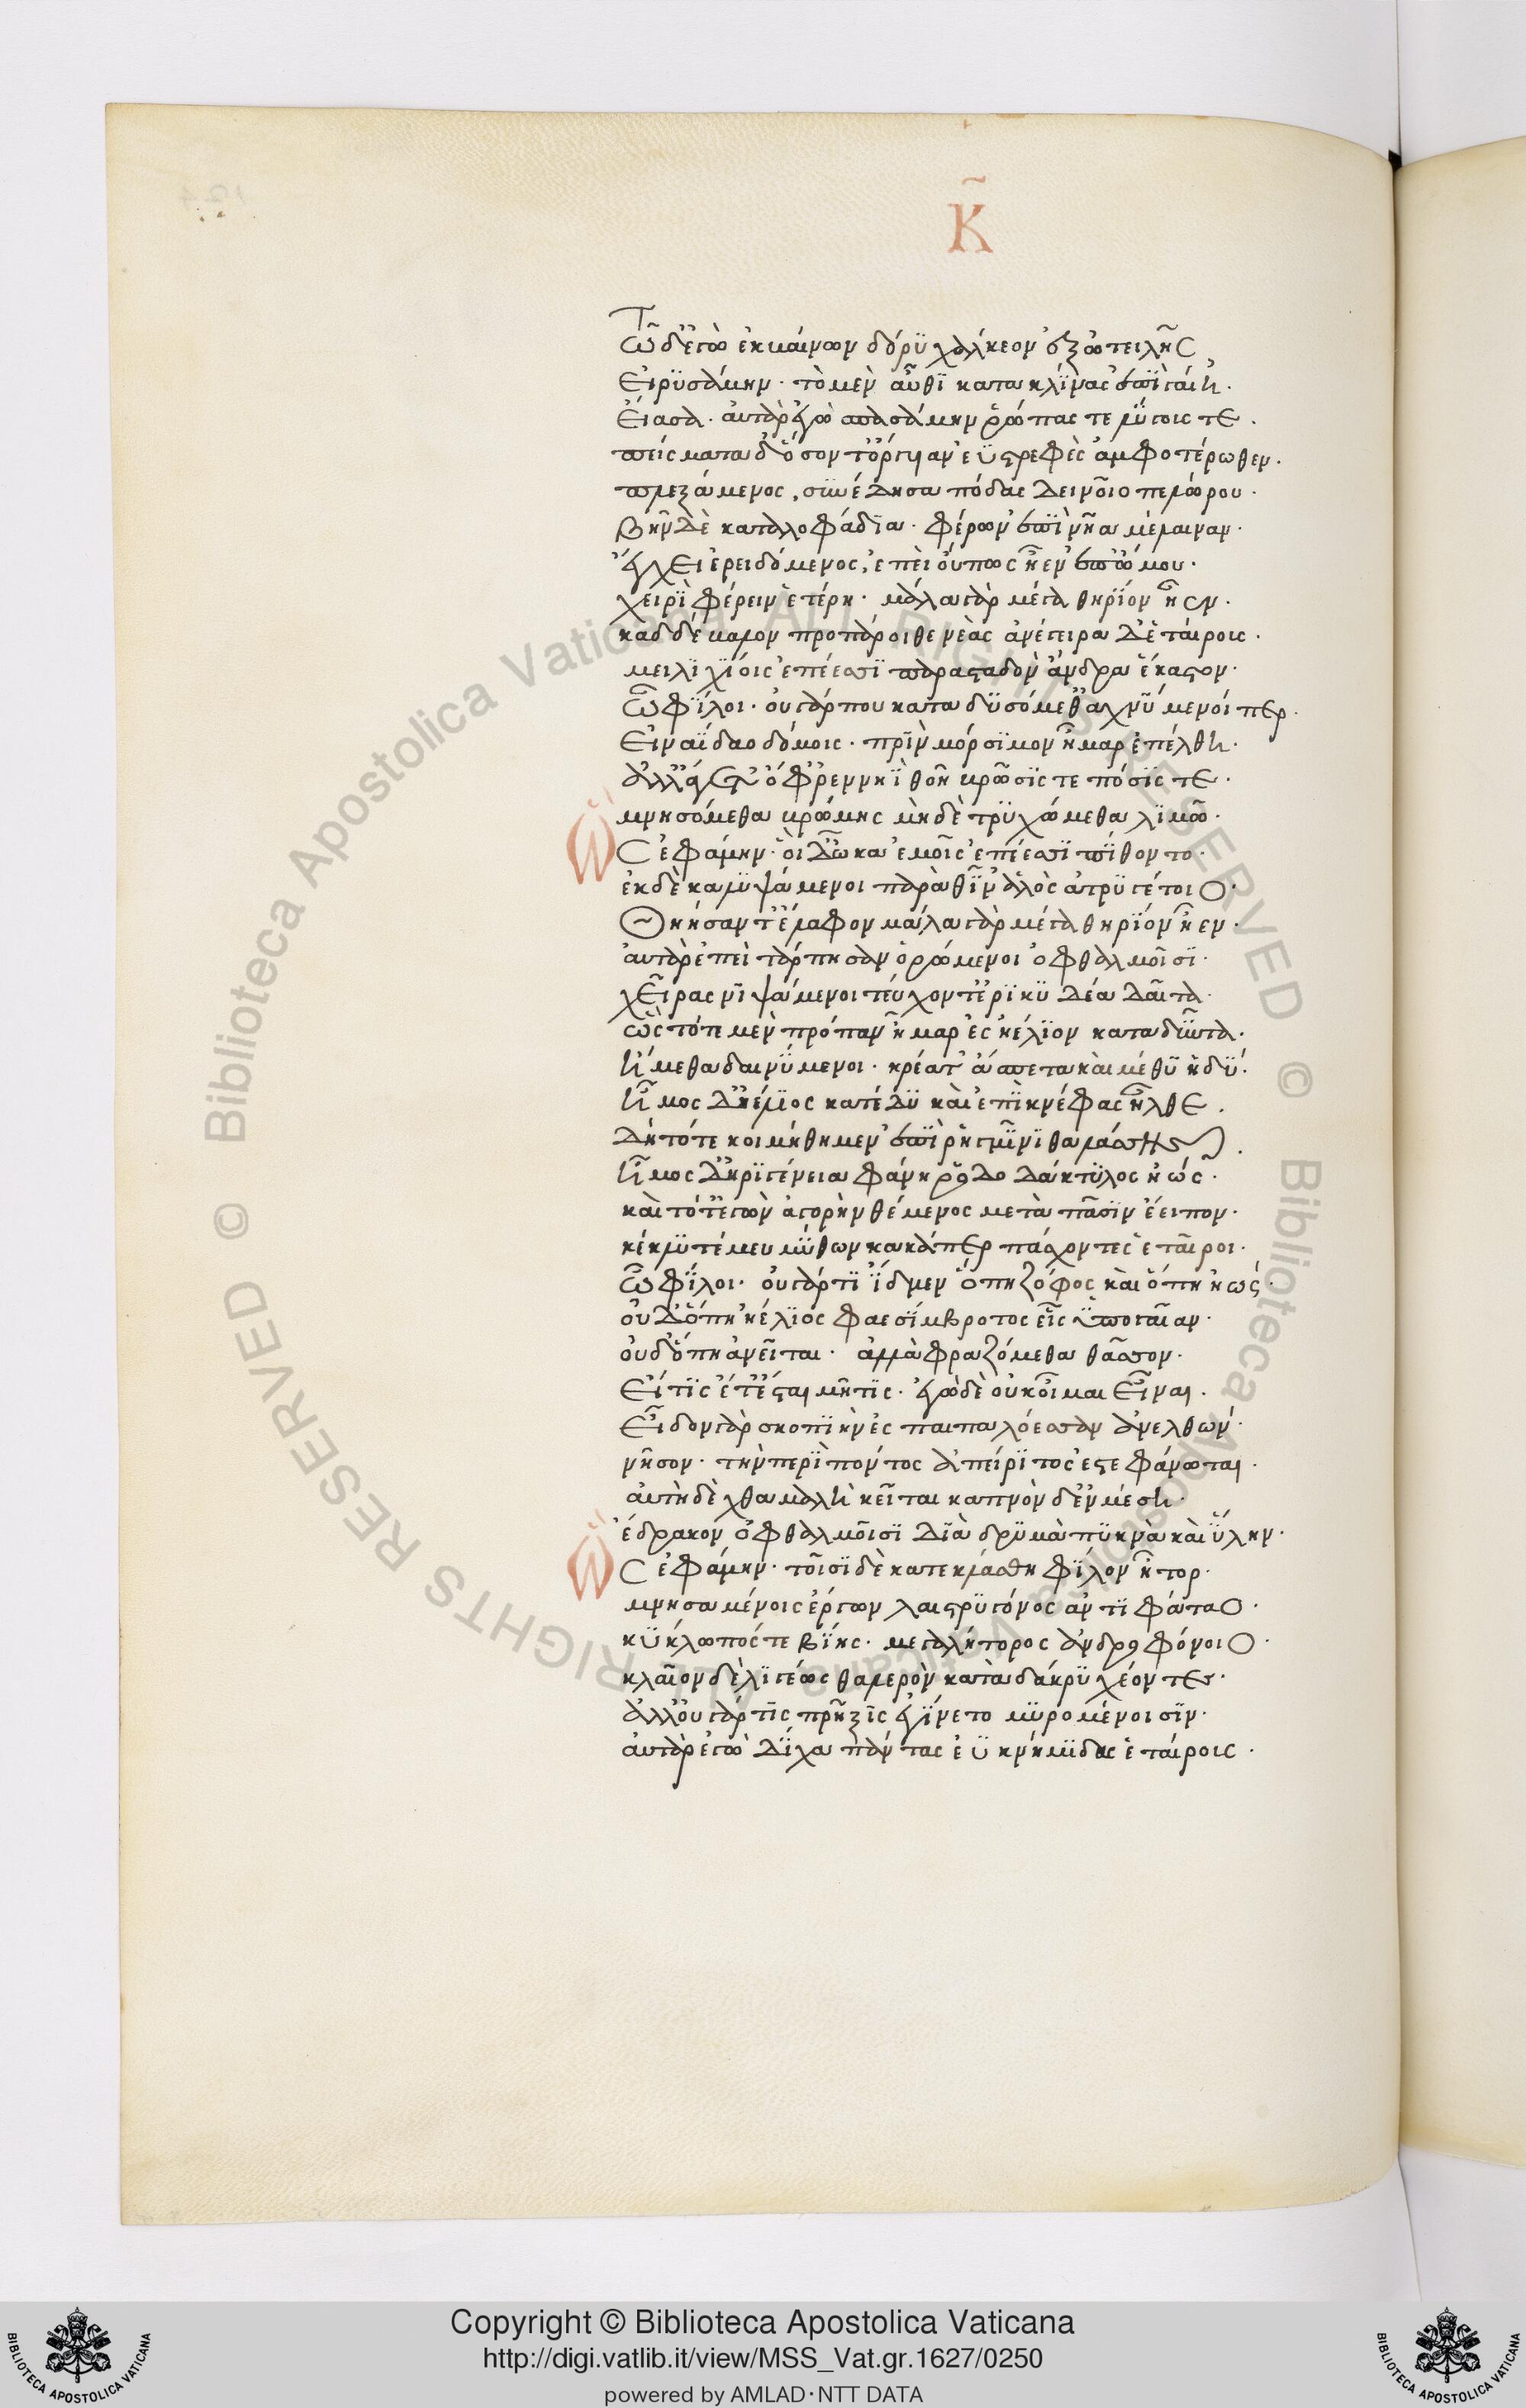 Κ̃
Τῶ δ' ἐγὼ ἐκβαίνων δόρϋ χάλκεον ἐξ ὠτειλῆς
Εἰρϋσάμην· τὸ μὲν αὖθϊ κατακλΐνας ἐπὶ γαίη·
Εἴασα· ἀυτὰρ ἐγὼ σπασάμην ῥῶπας τε λύγους τε·
πεῖσμα τὰ δ' ὅσον τ' ὄργυιαν ἐϋστρεφὲς ἀμφοτέρωθεν·
πλεξάμενος, συνέδησα πόδας δεινοῖο πελώρου·
βῆν δὲ καταλοφάδϊα· φέρων ἐπὶ νῆα μέλαιναν·
ἔγχει ἐρειδόμενος, ἐπεὶ οὔπως ἦεν ἐπ' ὤμου·
χειρῒ φέρειν ἑτέρη· μάλα γὰρ μέγα θηρΐον ἦεν·
καδδέ βαλον προπάροιθε νέας ἀνέγειρα δ' ἑταίρους·
μειλιχΐοις ἐπέεσσϊ παρασταδὸν ἄνδρα ἕκαστον·
ὦ φΐλοι· οὐ γάρ που καταδϋσόμεθ' ἀχνΰμενοί περ·
Εἰν αΐδαο δόμοις· πρῒν μόρσϊμον ἦμαρ ἐπέλθη·
ἀλλ' ἄγετ' ὄφρ' ἐν νηῒ θοῆ βρῶσΐς τε πόσΐς τε·
μνησόμεθα βρώμης μηδὲ τρϋχώμεθα λϊμῶ·
Ὣς ἐφάμην· οἱ δ' ὦκα ἐμοῖς ἐπέεσσϊ πΐθοντο·
ἐκ δὲ καλϋψάμενοι παρὰ θῖν' ἁλὸς ἀτρϋγέτοιο·
Θηήσαντ' ἔλαφον μάλα γὰρ μέγα θηρΐον ἦεν·
ἀυτὰρ ἐπεὶ τάρπησαν ὁρώμενοι ὀφθαλμοῖσϊ·
χεῖρας νϊψάμενοι τεύχοντ' ἐρϊκϋδέα δαῖτα·
ὣς τότε μὲν πρόπαν ἦμαρ ἐς ἠέλϊον καταδῦντα·
ἥμεθα δαινΰμενοι· κρέατ' ἄσπετα καὶ μέθυ ἡδΰ·
ἦμος δ' ἠέλϊος κατέδϋ καὶ ἐπῒ κνέφας ἦλθε·
Δὴ τότε κοιμήθημεν ἐπὶ ῥηγμῖνϊ θαλάσσης·
ἦμος δ' ἠρϊγένεια φάνη ῥοδοδάκτϋλος ἠώς·
καὶ τότ' ἐγὼν ἀγορὴν θέμενος μετὰ πᾶσϊν ἔειπον·
κέκλϋτέ μευ μΰθων κακά περ πάσχοντες ἑταῖροι·
ὦ φΐλοι· οὐ γάρ τϊ ἴδμεν ὅπη ζόφος καὶ ὅπη ἠώς·
οὐδ' ὅπη ἠέλϊος φαεσΐμβροτος εἶς' ϋπο γαῖαν·
οὐδ' ὅπη ἀνεῖται· ἀλλὰ φραζόμεθα θᾶσσον·
Εἴ τϊς ἔτ' ἔσται μῆτϊς· ἐγὼ δὲ οὐκ οἶμαι εἶναι·
Εἶδον γὰρ σκοπϊὴν ἐς παιπαλόεσσαν ἀνελθών·
νῆσον· τὴν περῒ πόντος ἀπείρϊτος ἐστεφάνωται·
αὐτὴ δὲ χθαμαλὴ κεῖται καπνὸν δ' ἐν μέση·
ἔδρακον ὀφθαλμοῖσϊ Δϊὰ δρϋμὰ πϋκνὰ καὶ ὕλην·
Ὣς ἐφάμην· τοῖσϊ δὲ κατεκλάσθη φΐλον ἦτορ·
μνησαμένοις ἔργων λαιστρϋγόνος ἀντϊφάταο·
κΰκλωπός τε βΐης· μεγαλήτορος ἀνδροφόνοιο·
κλαῖον δὲ λϊγέως θαλερὸν κατὰ δάκρϋ χέοντες·
ἀλλ' οὐ γάρ τϊς πρῆξϊς ἐγΐνετο μϋρομένοισϊν·
αὐτὰρ ἐγὼ Δΐχα πάντας ἐϋκνήμϊδας ἑταίρους·
Copyright © Biblioteca Apostolica Vaticana
http://digi.vatlib.it/view/MSS_Vat.gr.1627/0250
powered by AMLAD·NTT DATA